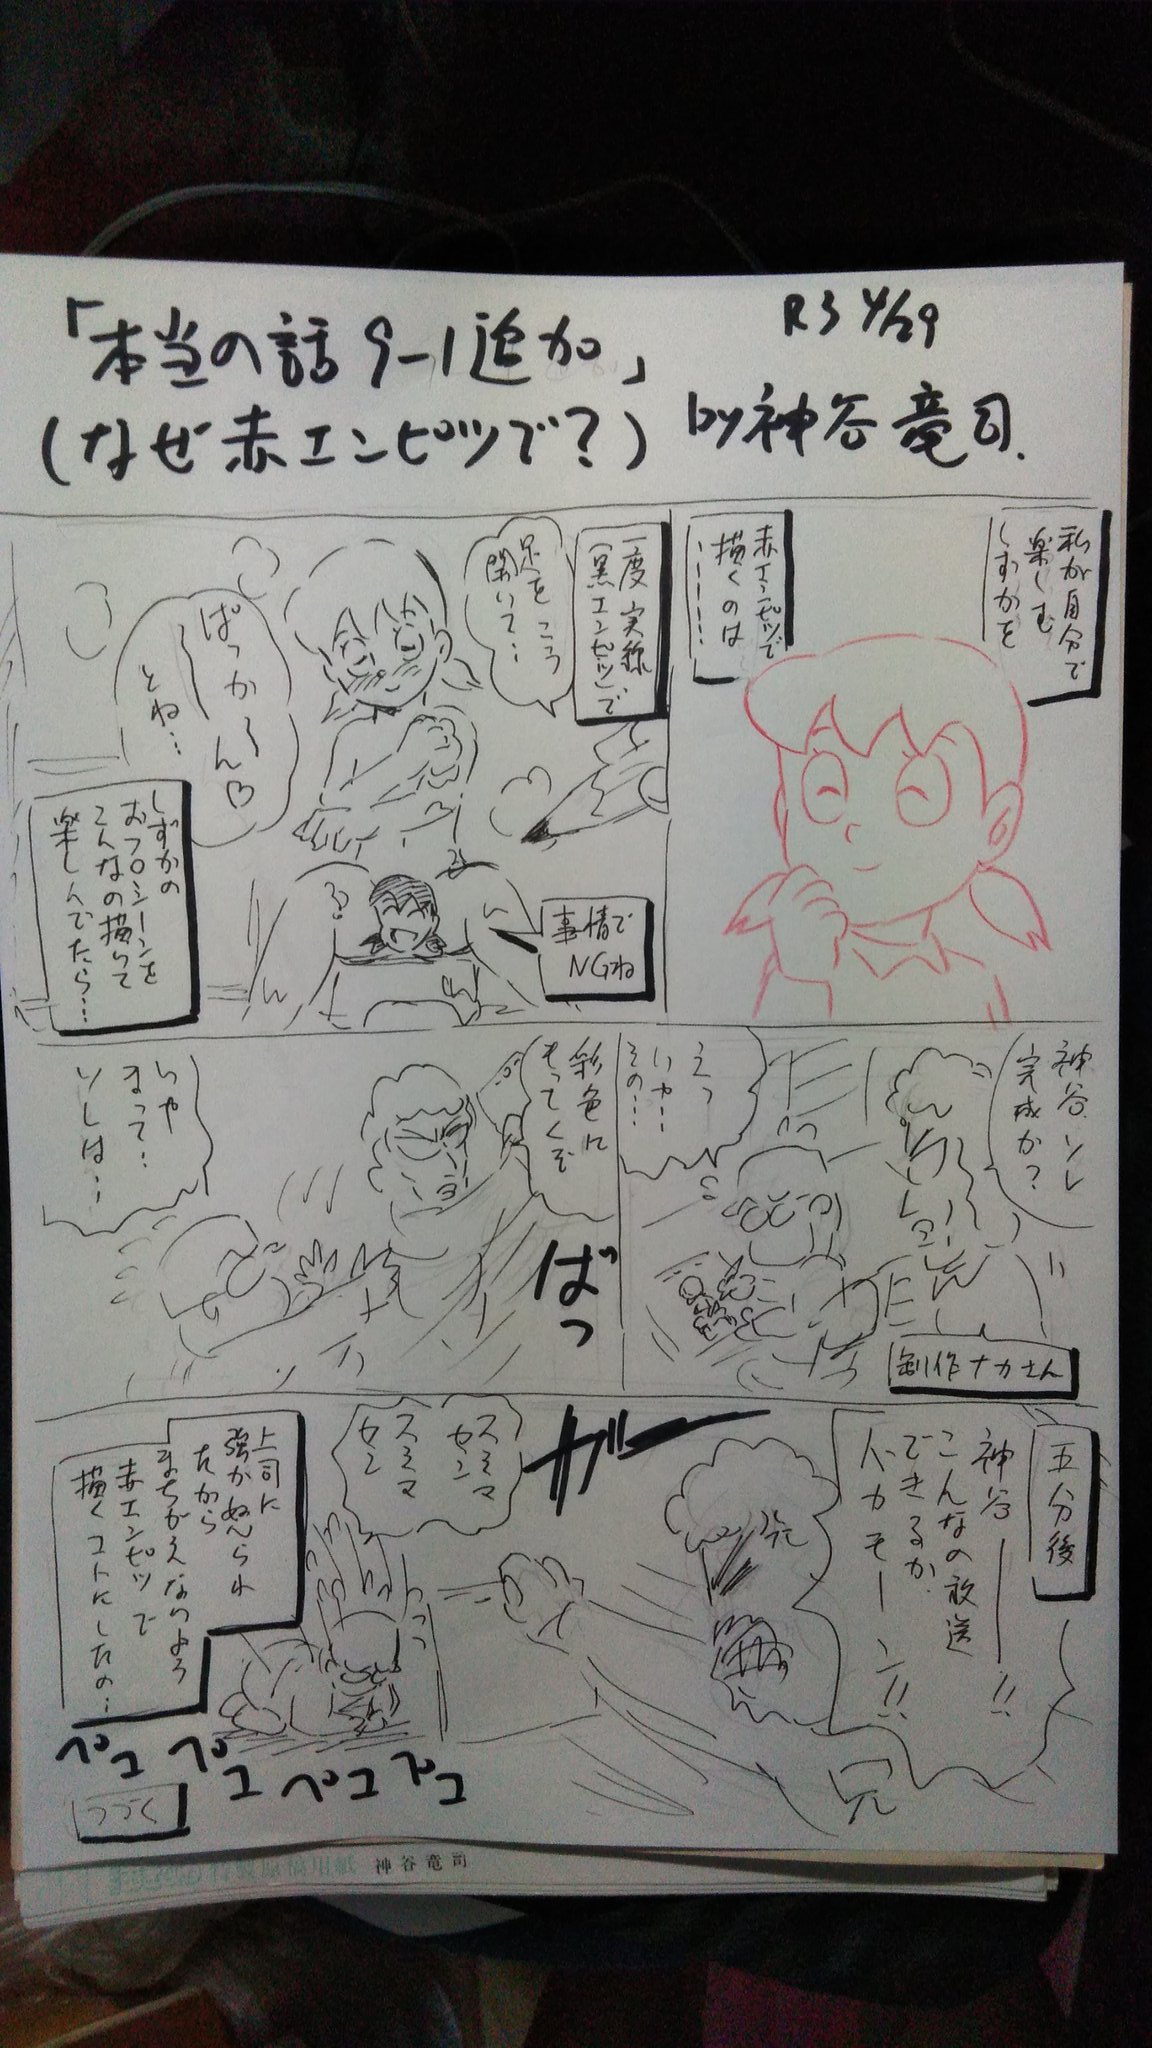 「本当の話 9-1追加」
R3 4/29
(なぜ赤エンピツで?)
by神谷竜司.
私が自分で
楽しむ
しずかを
赤エンピツで
描くのは
一度実線、
(黒エンピツ)で
足をこう
開いて…
ぱっか〜ん♡
とね…
事情で
NGね
しずかの
おフロシーンを
こんなの描いて
楽しんでたら…
神谷ソレ
完成か?
えっ
いヤ…
その…
制作ナカさん
彩色に
もってくぞ
ばっ
いや
まって…
ソレは…
五分後
神谷――!!
こんなの放送
できるか
バカモーン!!
ガー
スミマセン
スミマセン
上司に
強かぬられ
たから
まちがえないよう
赤エンピツで
描くコトにしたの…
ペコ ペコ ペコ ペコ
つづく
原稿用紙 神谷竜司